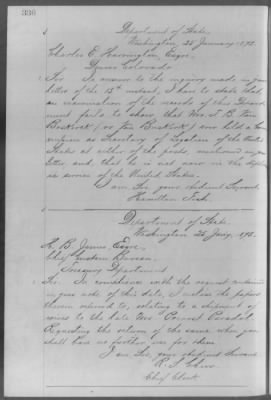 330
Department of State,
Washington 25 January 1872.
Charles E. Harrington, Esqre
Denver Colorado
Sir. In answer to the inquiry made in your
letter of the 15th instant, I have to state that
an examination of the records of this Depart-
ment fails to show that Mr. J. B. Van
ever held a Com-
mission as Secretary of Legation of the United
States at either of the posts mentioned in your
letter, and that he is not now in the diplomat-
ic service of the United States.
I am Sir, your obedient Servant
Hamilton Fish.
Department of State,
Washington 25 Jany. 1872.
Esqre.
Chief Customs Division,
Treasury Department
Sir. In compliance with the request contained
in your note of this date, I enclose the papers
therein referred to, relating to a shipment of
to the late Mr.
Requesting the return of the same when you
shall have no further use for them
I am Sir, your obedient Servant
R. S. Chew
Chief Clerk